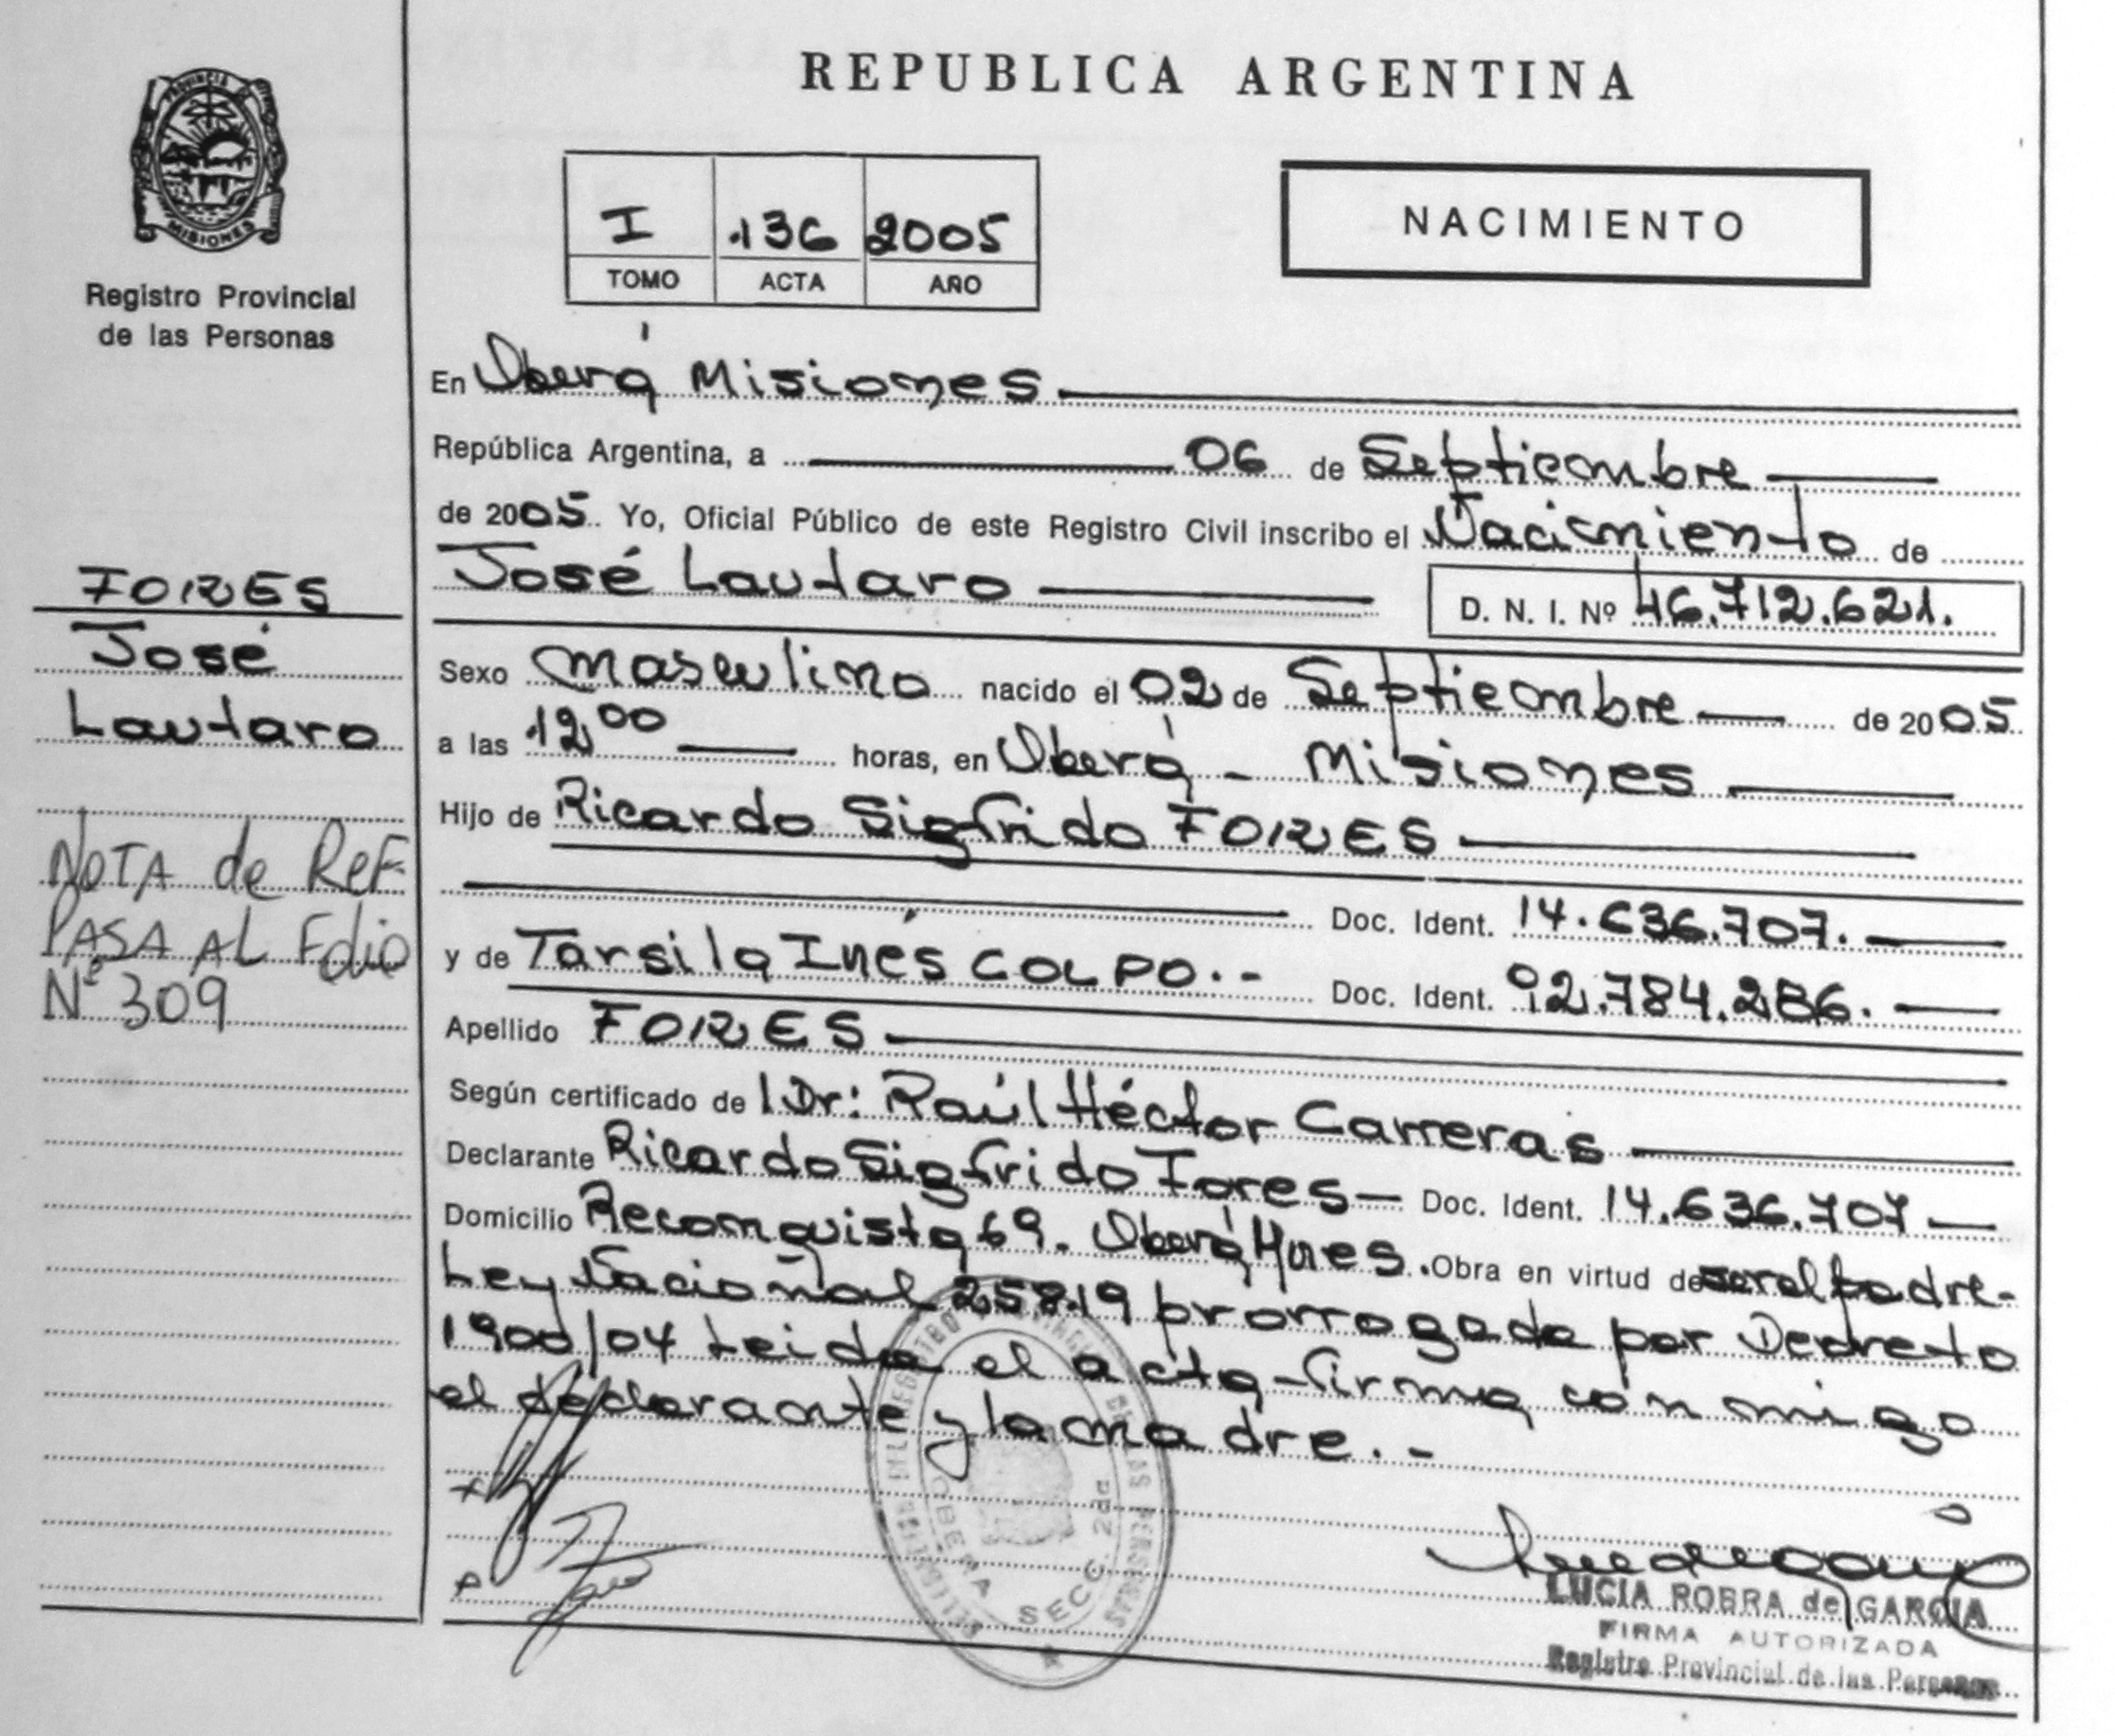 REPUBLICA ARGENTINA
PROVINCIA DE
MISIONES
Registro Provincial
de las Personas
I .136 2005
TOMO ACTA AÑO
NACIMIENTO
En Oberá Misiones
República Argentina, a 06 de Septiembre
de 2005. Yo, Oficial Público de este Registro Civil inscribo el Nacimiento de
José Lautaro
D. N. I. Nº 46.712.621.
FORES
José
Lautaro
NOTA de REF
PASA AL Folio
Nº 309
Sexo masculino nacido el 02 de Septiembre de 2005
a las 12,00 horas, en Oberá - Misiones
Hijo de Ricardo Sigfrido FORES
Doc. Ident. 14.636.707.
y de Tarsila Inés COLPO.- Doc. Ident. 92.784.286.
Apellido FORES
Según certificado de l Dr: Raúl Héctor Carreras
Declarante Ricardo Sigfrido Fores Doc. Ident. 14.636.707
Domicilio Reconquista 69. Oberá Mnes. Obra en virtud de ser el padre-
Ley Nacional 25819 prorrogada por Decreto
1900/04 Leida el acta-firma con migo
el declarante y la madre.-
OBERA SECC. 2da
LUCIA ROBRA de GARCIA
FIRMA AUTORIZADA
Registro Provincial de las Personas